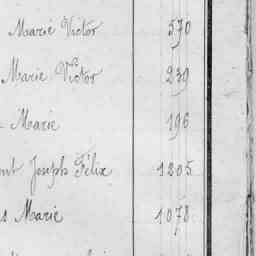 Marie Victor 570
Marie Victor 239
Marie 196
Joseph Félix 1205
Marie 1078